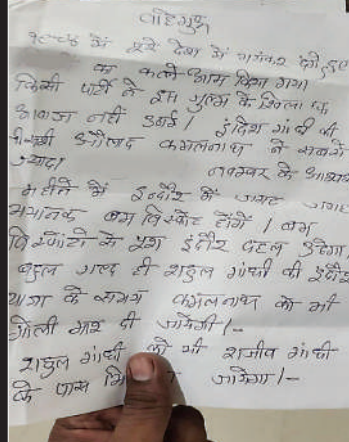 वाहेगुरु
१९८४ में पूरे देश में भयंकर दंगे हुए
का कत्ले आम किया गया
किसी पार्टी ने इस जुल्म के खिलाफ
आवाज नहीं उठाई। इंदिरा गांधी की
औलाद कमलनाथ ने सबसे
ज्यादा
नवम्बर के आखिर
महीने में इन्दौर में जगह जगह
भयानक बम विस्फोट होंगे। बम
विस्फोटों से पूरा इंदौर दहल उठेगा,
बहुत जल्द ही राहुल गांधी की इंदौर
यात्रा के समय कमलनाथ को भी
गोली मार दी जायेगी।-
राहुल गांधी को भी राजीव गांधी
के पास जायेगा।-